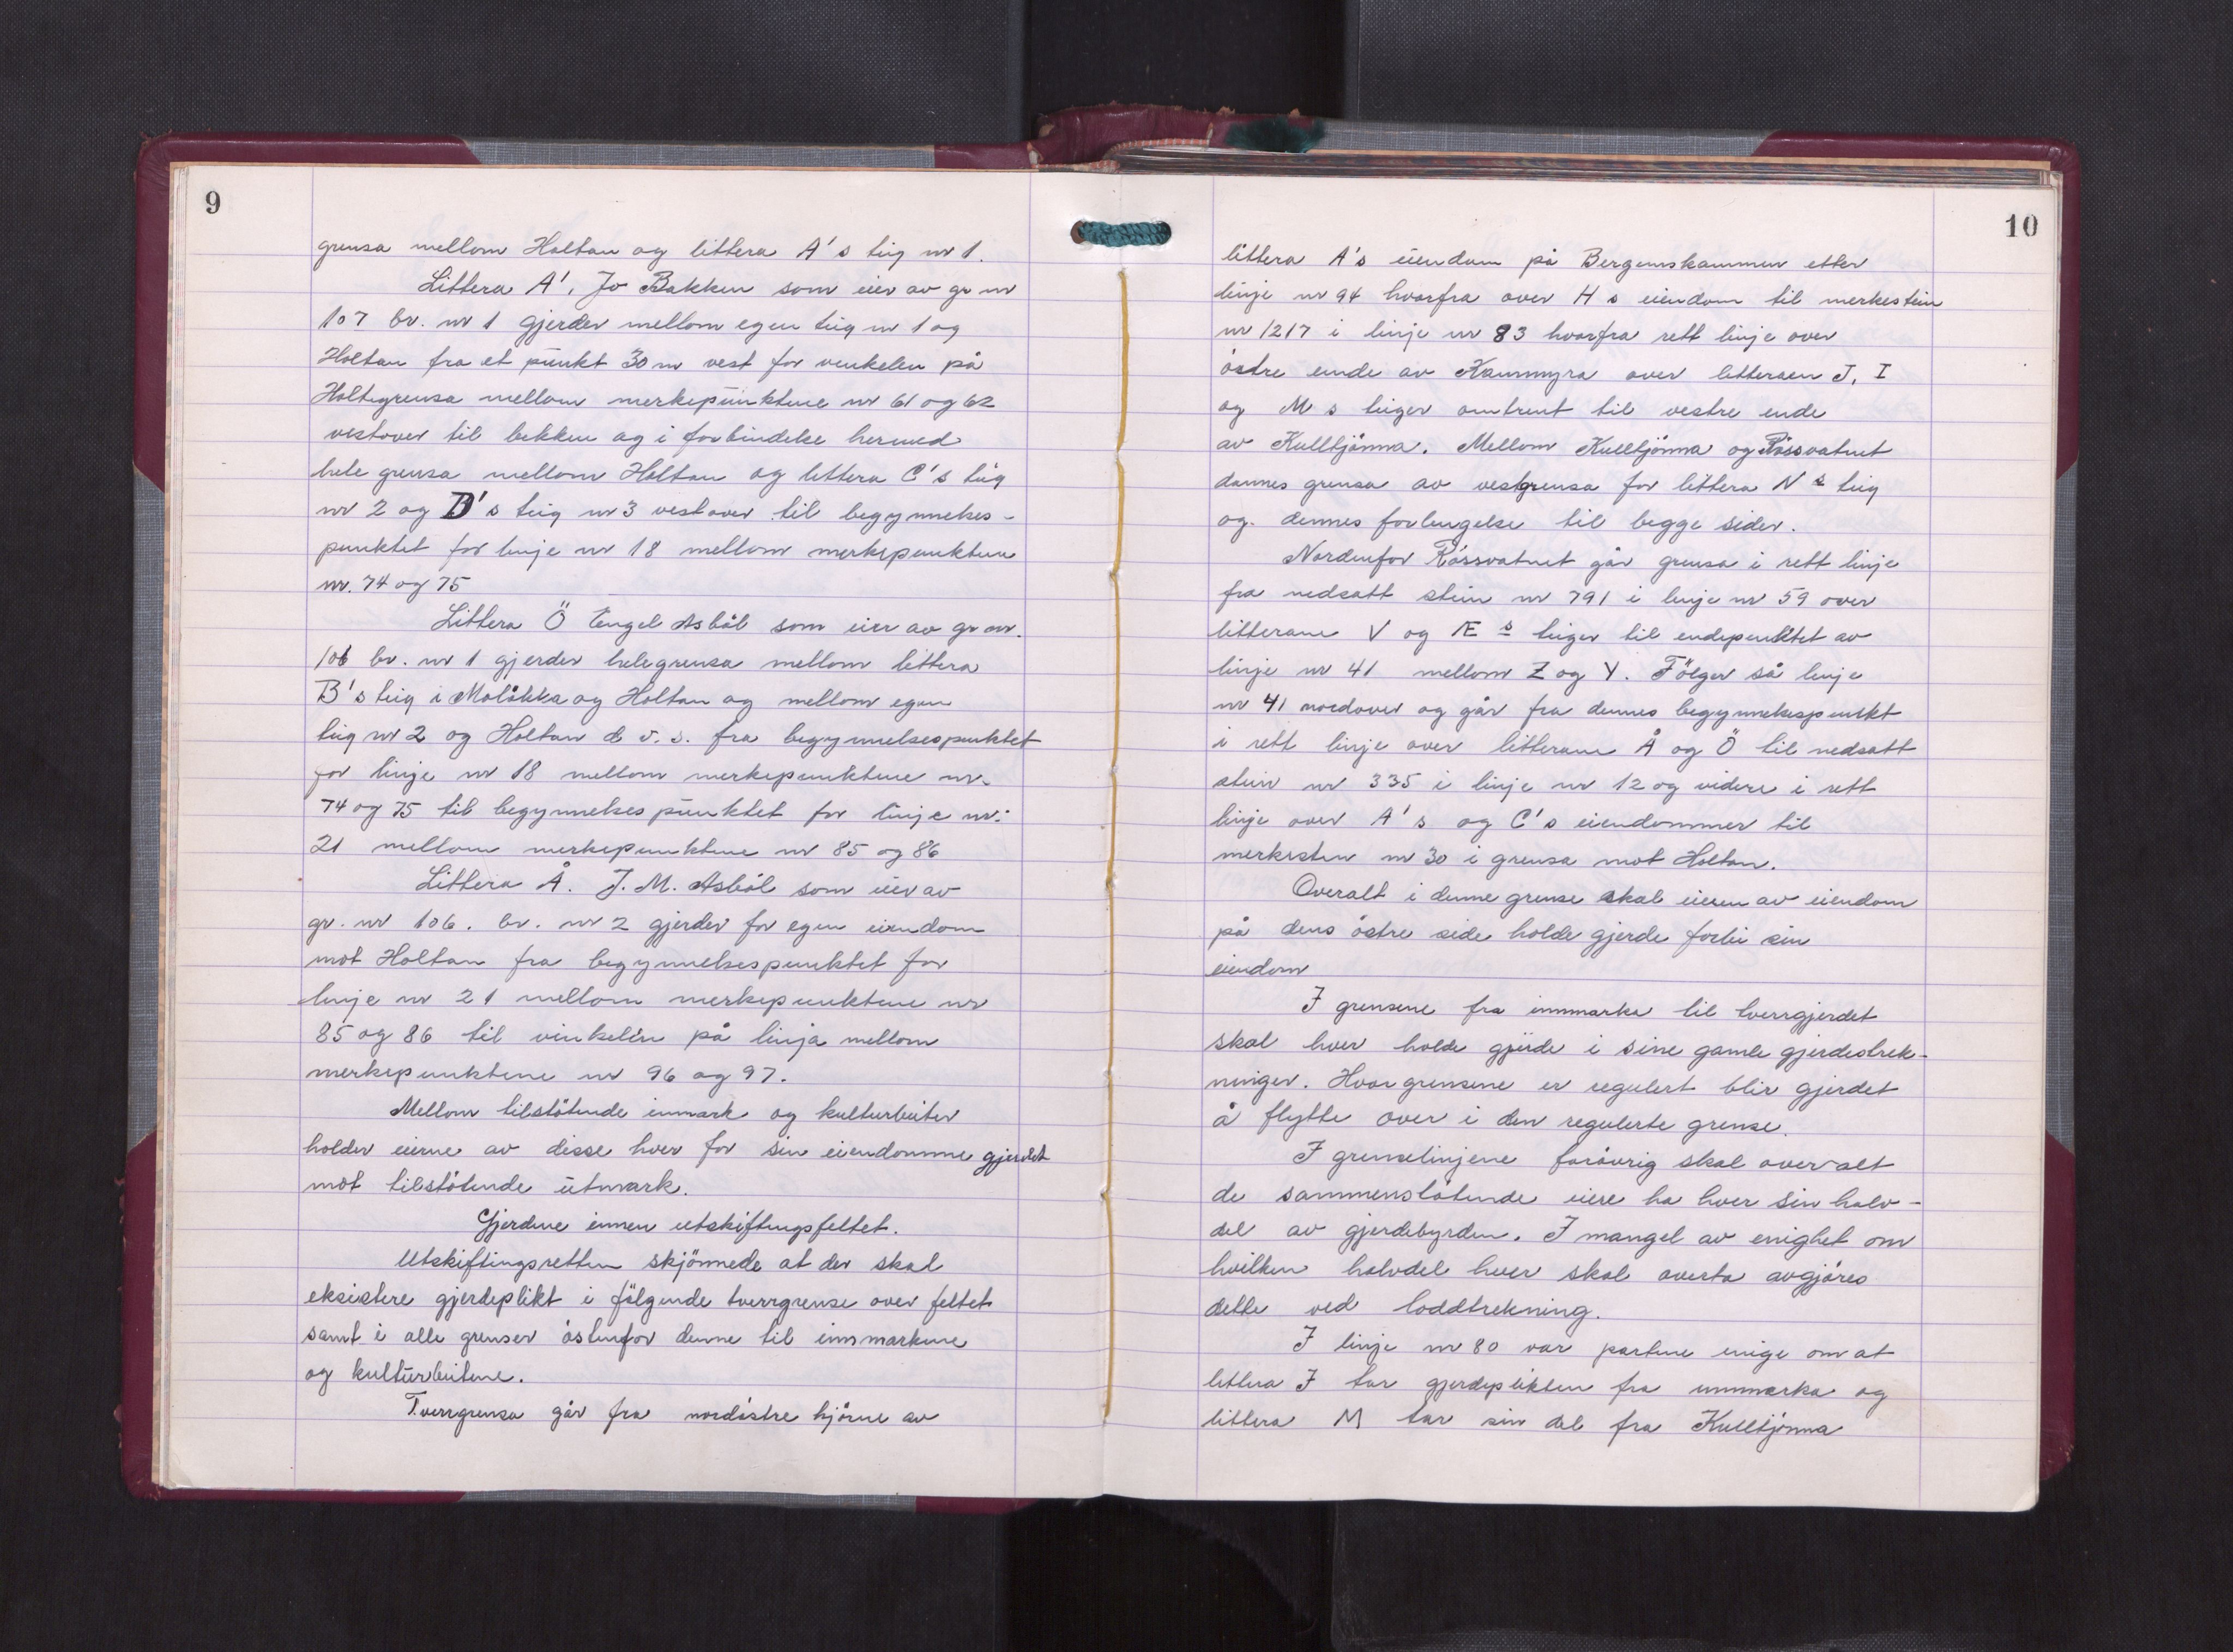 9
grensa mellom Holtan og littera A's teig nr 1.
Littera A'. Jo Bakken som eier av gr nr
107 br. nr 1 gjerder mellom egen teig nr 1 og
Holtan fra et punkt 30 m vest for vinkelen på
Holtegrensa mellom merkepunktene nr 61 og 62
vestover til bekken og i forbindelse hermed
hele grensa mellom Holtan og littera C's teig
nr 2 og B's teig nr 3 vestover til begynnelses-
punktet for linje nr 18 mellom merkepunktene
nr. 74 og 75
Littera Ö Engel Asbøl som eier av gr nr.
106 br. nr 1 gjerder hele grensa mellom littera
B's teig i Moløkka og Holtan og mellom egen
teig nr 2 og Holtan d v. s. fra begynnelsespunktet
for linje nr 18 mellom merkepunktene nr.
74 og 75 til begynnelsespunktet for linje nr.
21 mellom merkepunktene nr 85 og 86
Littera Å. J. M. Asbøl som eier av
gr. nr 106. br. nr 2 gjerder for egen eiendom
mot Holtan fra begynnelsespunktet for
linje nr 21 mellom merkepunktene nr
85 og 86 til vinkelen på linja mellom
merkepunktene nr 96 og 97.
Mellom tilstötende inmark og kulturbeiter
holder eierne av disse hver for sin eiendomme gjerdet
mot tilstötende utmark.
Gjerdene innen utskiftingsfeltet.
Utskiftingsretten skjönnede at der skal
eksistere gjerdeplikt i fölgende tverrgrense over feltet
samt i alle grenser östenfor denne til innmarkene
og kulturbeitene.
Tverrgrensa går fra nordöstre hjörne av
10
littera A's eiendom på Bergemskammen etter
linje nr 94 hvorfra over H s eiendom til merkestein
nr 1217 i linje nr 83 hvorfra rett linje over
östre ende av Kammyra over litteraen J, I
og M s teiger omtrent til vestre ende
av Kulltjönna. Mellom Kulltjönna og Rössvatnet
dannes grensa av vestgrensa for littera N s teig
og dennes forlengelse til begge sider.
Nordenfor Rössvatnet går grensa i rett linje
fra nedsatt stein nr 791 i linje nr 59 over
litterane V og Æ s teiger til endepunktet av
linje nr 41 mellom Z og Y. Fölger så linje
nr 41 nordover og går fra dennes begynnelsespunkt
i rett linje over litterane Å og Ö til nedsatt
stein nr 335 i linje nr 12 og videre i rett
linje over A's og C's eiendommer til
merkesten nr 30 i grensa mot Holtan.
Overalt i denne grense skal eieren av eiendom
på dens östre side holde gjerde forbi sin
eiendom
I grensene fra innmarka til tverrgjerdet
skal hver holde gjerde i sine gamle gjerdestrek-
ninger. Hvor grensene er regulert blir gjerdet
å flytte over i den regulerte grense.
I grenselinjene forövrig skal overalt
de sammenstötende eiere ha hver sin halv-
del av gjerdebyrden. I mangel av enighet om
hvilken halvdel hver skal overta avgjöres
dette ved loddtrekning.
I linje nr 80 var partene enige om at
littera I tar gjerdeplikten fra innmarka og
littera M tar sin del fra Kulltjönna